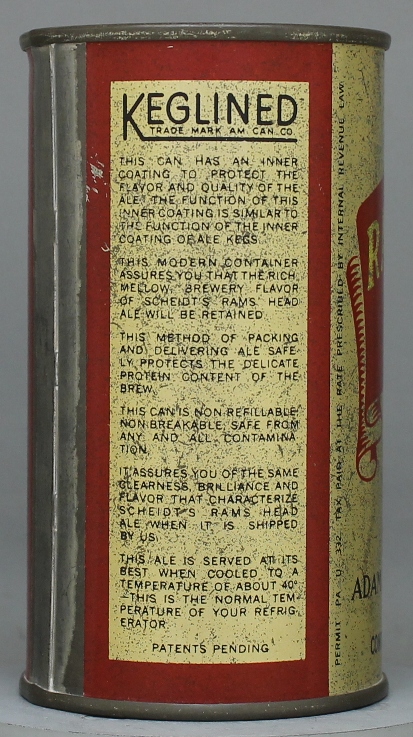 KEGLINED
TRADE MARK AM CAN CO
THIS CAN HAS AN INNER
COATING TO PROTECT THE
FLAVOR AND QUALITY OF THE
ALE. THE FUNCTION OF THIS
INNER COATING IS SIMILAR TO
THE FUNCTION OF THE INNER
COATING OF ALE KEGS.
THIS MODERN CONTAINER
ASSURES YOU THAT THE RICH,
MELLOW, BREWERY FLAVOR
OF SCHEIDT'S RAMS HEAD
ALE WILL BE RETAINED.
THIS METHOD OF PACKING
AND DELIVERING ALE SAFE-
LY PROTECTS THE DELICATE
PROTEIN CONTENT OF THE
BREW.
THIS CAN IS NON REFILLABLE,
NON BREAKABLE, SAFE FROM
ANY AND ALL CONTAMINA-
TION.
IT ASSURES YOU OF THE SAME
CLEARNESS, BRILLIANCE AND
FLAVOR THAT CHARACTERIZE
SCHEIDT'S RAMS HEAD
ALE WHEN IT IS SHIPPED
BY US.
THIS ALE IS SERVED AT ITS
BEST WHEN COOLED TO A
TEMPERATURE OF ABOUT 40°
—THIS IS THE NORMAL TEM-
PERATURE OF YOUR REFRIG-
ERATOR.
PATENTS PENDING
PERMIT PA U 332. TAX PAID AT THE RATE PRESCRIBED BY INTERNAL REVENUE LAW
R
ADA
CON